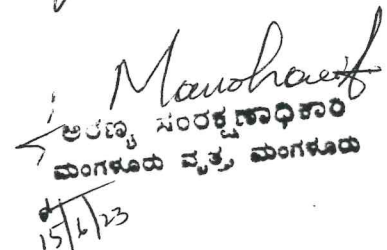 ಅರಣ್ಯ ಸಂರಕ್ಷಣಾಧಿಕಾರಿ
ಮಂಗಳೂರು ವೃತ್ತ, ಮಂಗಳೂರು
15/6/23